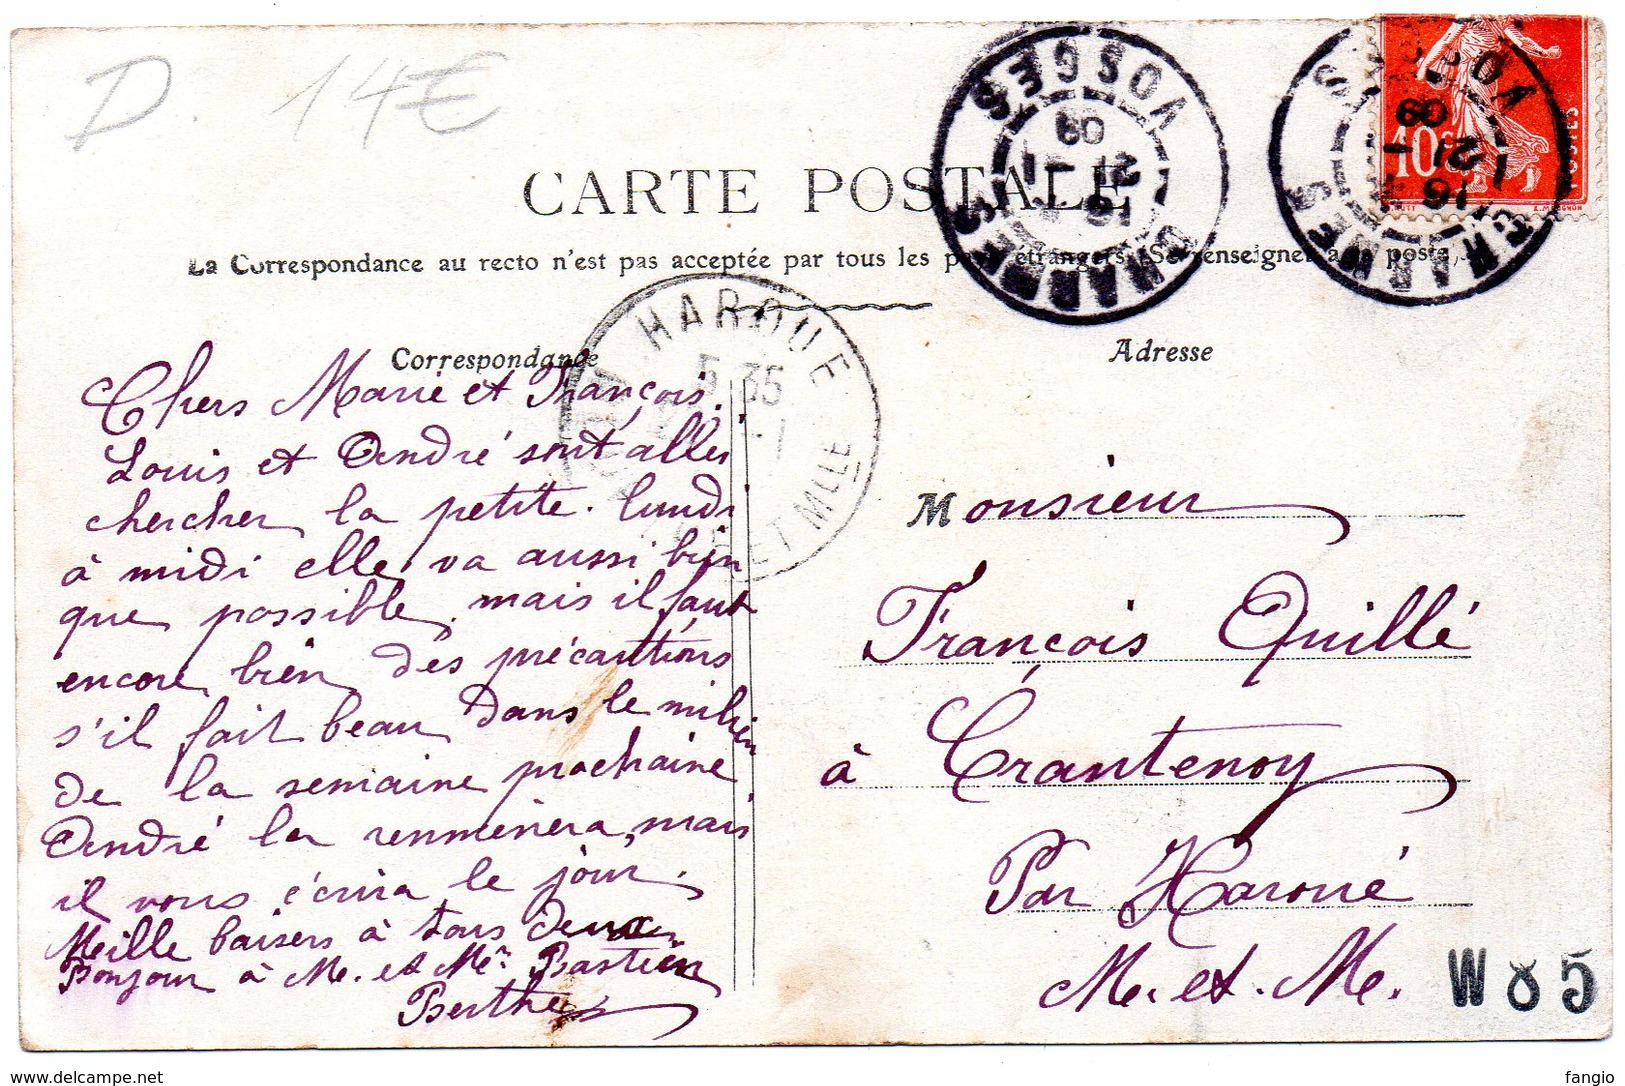 D. 14€
CARTE POSTALE
La Correspondance au recto n'est pas acceptée par tous les pays étrangers (Se renseigner à la poste)
VOSGES
CHARMES
16
21 - 1
09
VOSGES
CHARMES
16
21 - 1
09
10c
POSTES
HAROUE
5 35
-1
MTHE ET MLLE
Correspondance
Adresse
Chers Marie et François.
Louis et André sont allés
chercher la petite. lundi
à midi elle va aussi bien
que possible, mais il faut
encore bien des précautions
s'il fait beau dans le milieu
de la semaine prochaine
André la renmènera, mais
il vous écrira le jour.
Meille baisers à tous deux
Bonjour à M. et Me Bastien
Berthe
Monsieur
François Quillé
à Crantenoy
Par Haroué
M. et. M.
W 8 5
www.delcampe.net
fangio